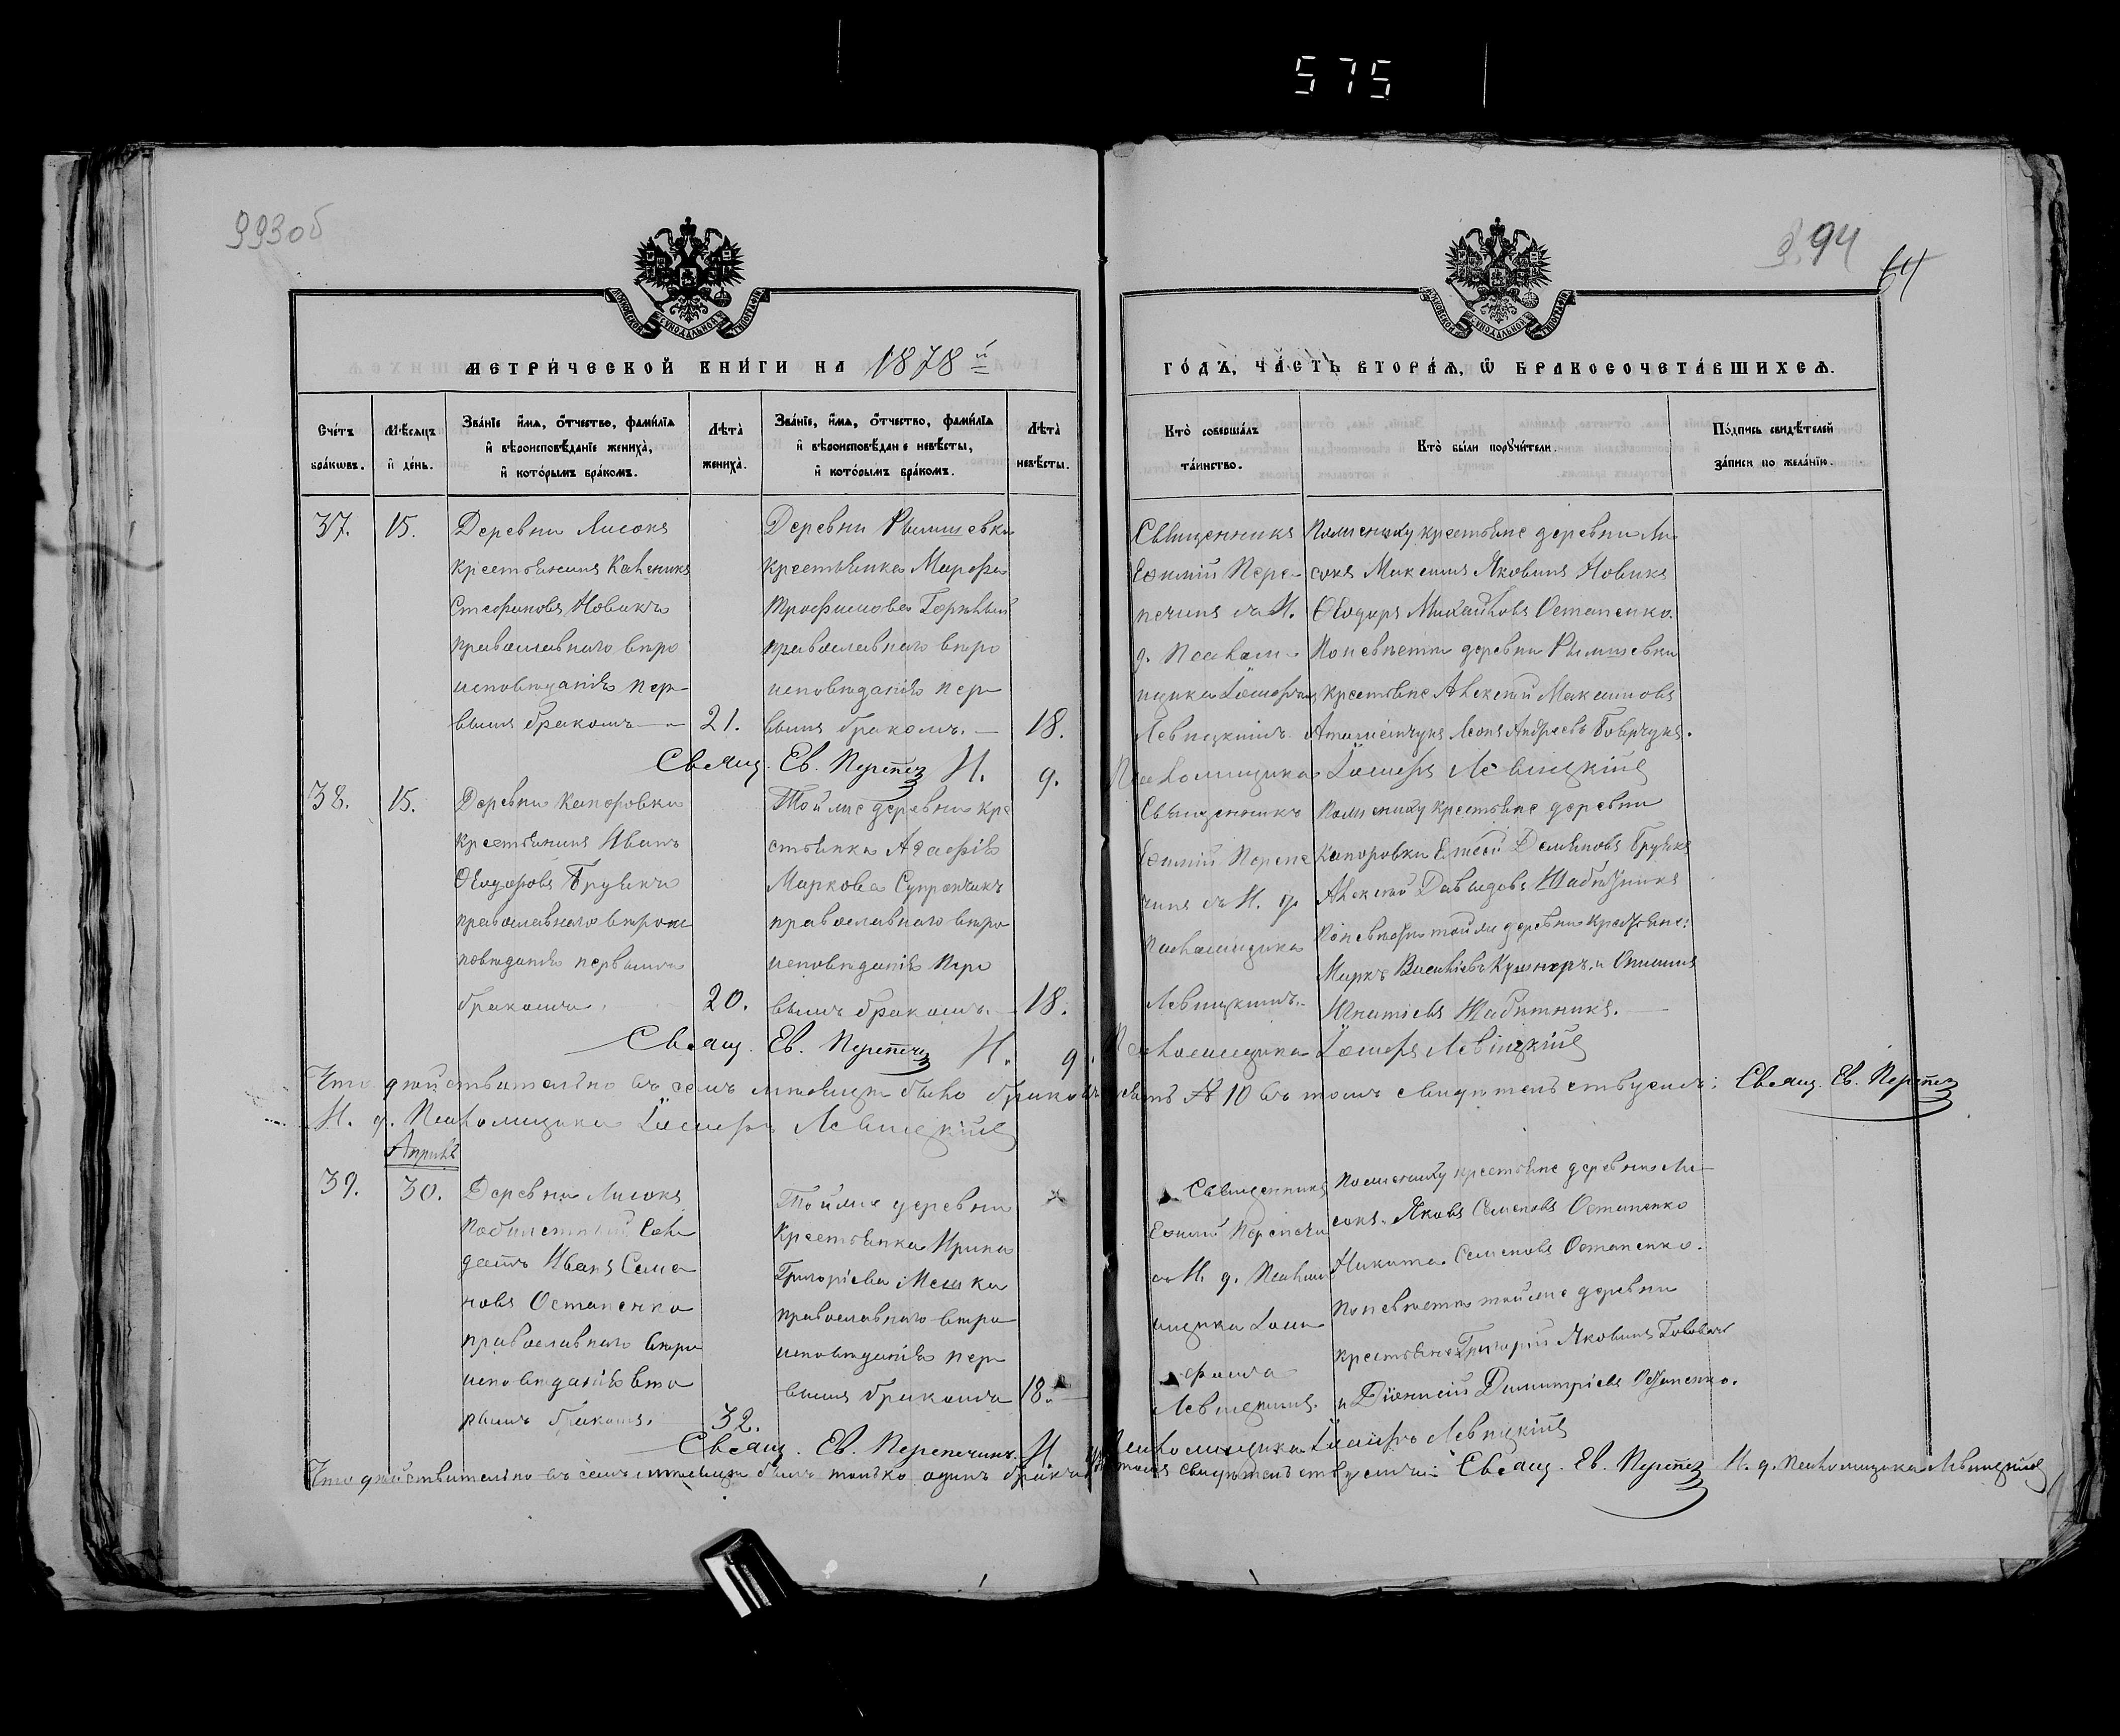 575
993об
94
64
МЕТРИ́ЧЕСКОЙ КНИ́ГИ НА 1878 й
ГО́ДЪ, ЧА́СТЬ ВТОРА́Я, Ѡ БРАКОСОЧЕТА́ВШИХСЯ.
Сче́тъ бра́кѡвъ.
Мѣ́сяцъ и҆ де́нь.
Зва́нїе и҆́мя, ѻ҆́тчество, фами́лїа
и҆ вѣроисповѣ́данїе жениха̀,
и҆ кото́рымъ бра́комъ.
Лѣта̀ жениха̀.
Зва́нїе, и҆́мя, ѻ҆́тчество, фами́лїа
и҆ вѣроисповѣ́дан е невѣ́сты,
и҆ кото́рымъ бра́комъ.
Лѣта̀ невѣ́сты.
Кто̀ соверша́лъ та́инство.
Кто̀ бы́ли порꙋчи́тели.
По́дпись свидѣ́телей за́писи по жела́нїю.
37.
15.
Деревни Лисокъ
крестьянинъ
Стефановъ Новикъ
православнаго вѣро
исповѣданія пер-
вымъ бракомъ
21.
Деревни
крестьянка Марфа
Трофимова
православнаго вѣро
исповѣданія пер
вымъ бракомъ.
18.
Священникъ
Евѳимій Пере-
печинъ съ И.
д. Псалом-
щика Іосифомъ
Левицкимъ
По жениху крестьяне деревни Ли
сокъ Максимъ Яковинъ Новикъ
Ѳеодоръ Михайловъ Остапенко.
По невѣстѣ деревни
крестьяне Алексѣй Максимовъ
Андреевъ
Свящ. Ев. Перепеч И. д. Псаломщика Іосифъ Левицкій
38.
15.
Деревни Капоровки
крестьянинъ Иванъ
Ѳеодоровъ
православнаго вѣроис
повѣданія первымъ
бракомъ
20.
Той же деревни кре
стьянка Агафія
Маркова Супрончикъ
православнаго вѣро
исповѣданія пер
вымъ бракомъ.
18.
Священникъ
Евѳимій Перепе
чинъ съ И. д.
Псаломщика
Левицкимъ.
По жениху крестьяне деревни
Капоровки Демьяновъ
Алексѣй Давидовъ
По невѣстѣ той же деревни крестьяне:
Маркъ Василіевъ Кушнеръ, и
Игнатіевъ
Свящ. Ев. Перепеч И. д. Псаломщика Іосифъ Левицкій
Что дѣйствительно въ семъ мѣсяцѣ было браковъ десять № 10 въ томъ свидѣтельствуемъ: Свящ. Ев. Перепеч
И. д. Псаломщика Іосифъ Левицкій
Апрѣль
39.
30.
Деревни Лисокъ
Сол
датъ Иванъ Семе
новъ Остапенко
православнаго вѣро
исповѣданія вто
рымъ бракомъ.
32.
Той же деревни
крестьянка Ирина
Григоріева
православнаго вѣро
исповѣданія пер
вымъ бракомъ
18.
Священникъ
Евѳимій Перепечи
съ И. д. Псалом
щика Іоси
фомъ
Левицкимъ.
По жениху крестьяне деревни Ли-
сокъ. Яковъ Семеновъ Остапенко
Никита Семеновъ Остапенко.
По невѣстѣ той же деревни
крестьяне Григорій Яковинъ
и Діонисій Димитріевъ Остапенко.
Свящ. Ев. Перепечинъ И. д. Псаломщика Іосифъ Левицкій
Что дѣйствительно въ семъ мѣсяцѣ былъ только одинъ бракъ въ томъ свидѣтельствуемъ: Свящ. Ев. Перепеч И. д. Псаломщика Левицкій